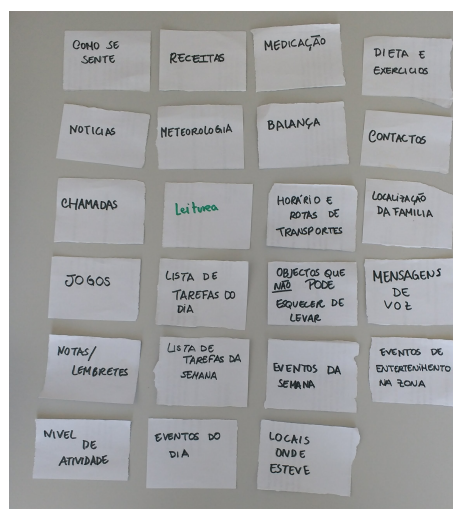 COMO SE
SENTE
RECEITAS
MEDICAÇÃO
DIETA E
EXERCICIOS
NOTICIAS
METEOROLOGIA
BALANÇA
CONTACTOS
CHAMADAS
Leitura
HORÁRIO E
ROTAS DE
TRANSPORTES
LOCALIZAÇÃO
DA FAMILIA
JOGOS
LISTA DE
TAREFAS DO
DIA
OBJECTOS QUE
NÃO PODE
ESQUECER DE
LEVAR
MENSAGENS
DE
VOZ
NOTAS/
LEMBRETES
LISTA DE
TAREFAS DA
SEMANA
EVENTOS DA
SEMANA
EVENTOS DE
ENTERTENIMENTO
NA ZONA
NIVEL
DE
ATIVIDADE
EVENTOS DO
DIA
LOCAIS
ONDE
ESTEVE